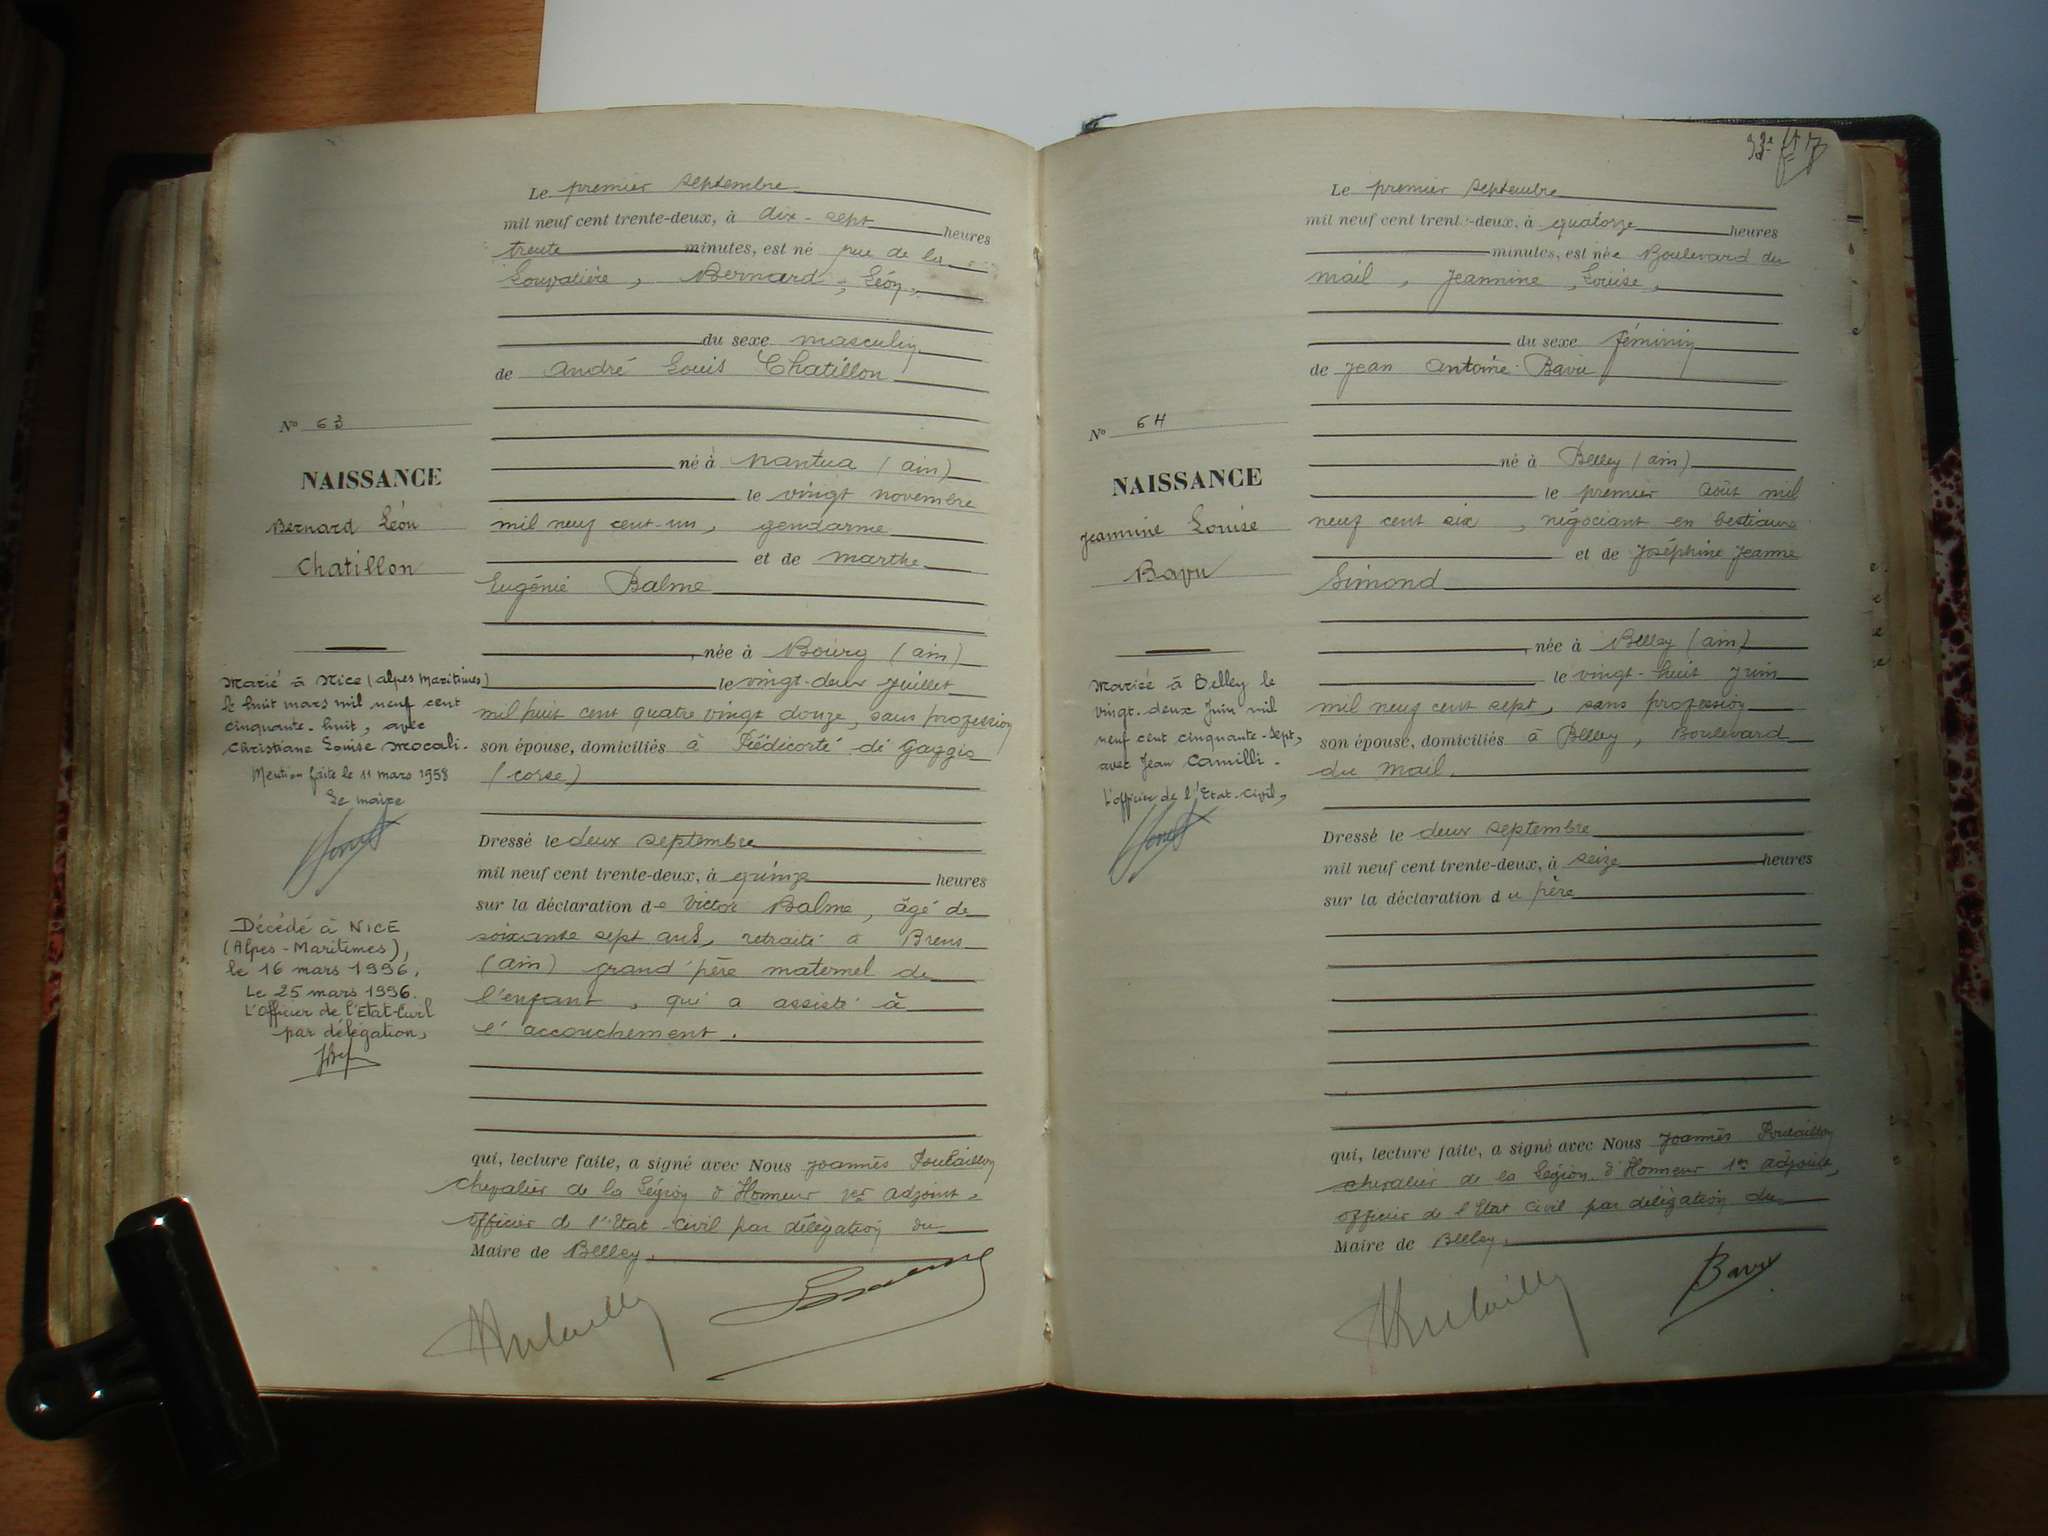 Le premier septembre
mil neuf cent trente-deux, à dix-sept heures
trente minutes, est né rue de la
Louvatière, Bernard, Léon,
du sexe masculin
de André Louis Chatillon
né à Nantua (ain)
le vingt novembre
mil neuf cent-un, gendarme
et de Marthe
Eugénie Balme
, née à Bourg (ain)
le vingt-deux juillet
mil huit cent quatre vingt douze, sans profession
son épouse, domiciliés à Piédicorté di Gaggio
(corse)
Dressé le deux septembre
mil neuf cent trente-deux, à quinze heures
sur la déclaration de Victor Balme, âgé de
soixante sept ans, retraité à Brens
(ain) grand'père maternel de
l'enfant, qui a assisté à
l'accouchement.
qui, lecture faite, a signé avec Nous Joannès Poulaillon
chevalier de la Légion d'Honneur 1er adjoint,
officier de l'Etat-Civil par délégation du
Maire de Belley.
No 63
NAISSANCE
Bernard Léon
Chatillon
Marié à Nice (alpes maritimes)
le huit mars mil neuf cent
cinquante-huit, avec
Christiane Louise Mocali.
Mention faite le 11 mars 1958
Le maire
Décédé à NICE
(Alpes-Maritimes),
le 16 mars 1996.
Le 25 mars 1996.
L'Officier de l'Etat-Civil
par délégation,
Le premier septembre
mil neuf cent trente-deux, à quatorze heures
minutes, est née Boulevard du
mail, Jeannine, Louise,
du sexe féminin
de Jean Antoine Bavu
né à Belley (ain)
le premier août mil
neuf cent six, négociant en bestiaux
et de Joséphine Jeanne
Simond
, née à Belley (ain)
le vingt-huit juin
mil neuf cent sept, sans profession
son épouse, domiciliés à Belley, Boulevard
du Mail.
Dressé le deux septembre
mil neuf cent trente-deux, à seize heures
sur la déclaration du père
qui, lecture faite, a signé avec Nous Joannès Poulaillon
chevalier de la Légion d'Honneur 1er adjoint,
officier de l'Etat Civil par délégation du
Maire de Belley.
Bavu
No 64
NAISSANCE
Jeannine Louise
Bavu
Mariée à Belley le
vingt-deux Juin mil
neuf cent cinquante-sept,
avec Jean Camilli.
L'officier de l'Etat-Civil,